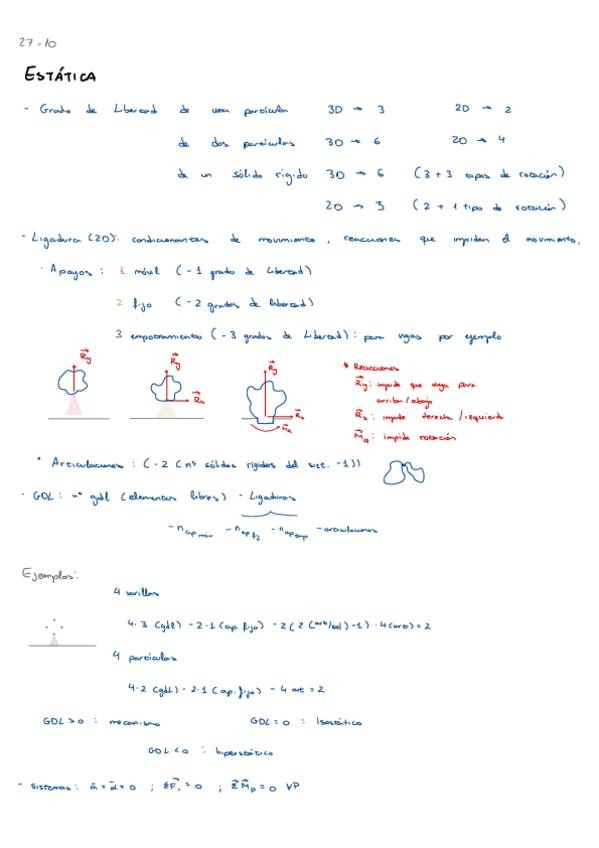 27-10
ESTÁTICA
- Grado de Libertad de una partícula 3D → 3 2D → 2
de dos partículas 3D → 6 2D → 4
de un sólido rígido 3D → 6 (3 + 3 tipos de rotación)
2D → 3 (2 + 1 tipo de rotación)
- Ligadura (2D): condicionantes de movimiento, reacciones que impiden el movimiento.
· Apoyos: 1 móvil (-1 grado de Libertad)
2 fijo (-2 grados de libertad)
3 empotramiento (-3 grados de Libertad): para vigas por ejemplo
Ry
Ry Rx
Ry Rx Ma
* Reacciones
Ry: impide que vaya para
arriba/abajo
Rx: impide derecha/izquierda
Ma: impide rotación
· Articulaciones: (-2 (nº sólidos rígidos del sist. -1))
· GDL: nº gdl (elementos libres) - Ligaduras
- nap móv - nap fj - nap emp - articulaciones
Ejemplos:
4 varillas
4·3 (gdl) - 2·1 (ap. fijo) - 2(2 -1)·4(art) = 2
4 partículas
4·2 (gdl) - 2·1 (ap. fijo) - 4 art = 2
GDL > 0 : mecanismo GDL = 0 : Isostático
GDL < 0 : hiperestático
- Sistemas: a = α = 0 ; ΣFi = 0 ; ΣMp = 0 ∀P